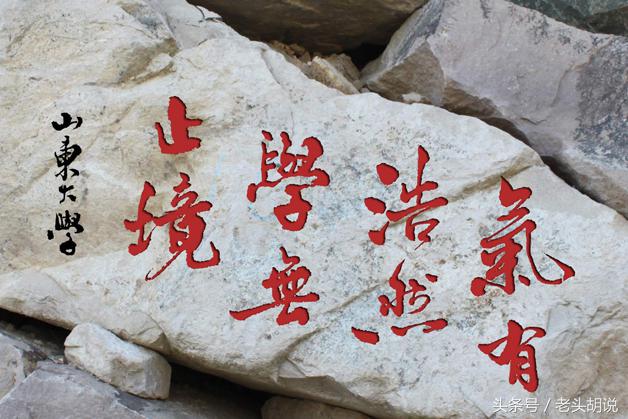 氣有
浩然
學無
止境
山東大學
头条号 / 老头胡说